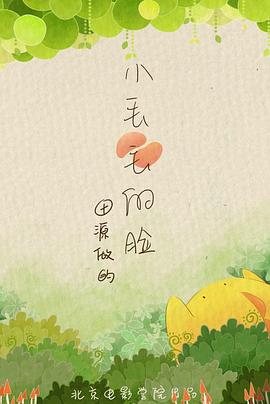 小毛毛的脸
田源做的
北京电影学院出品